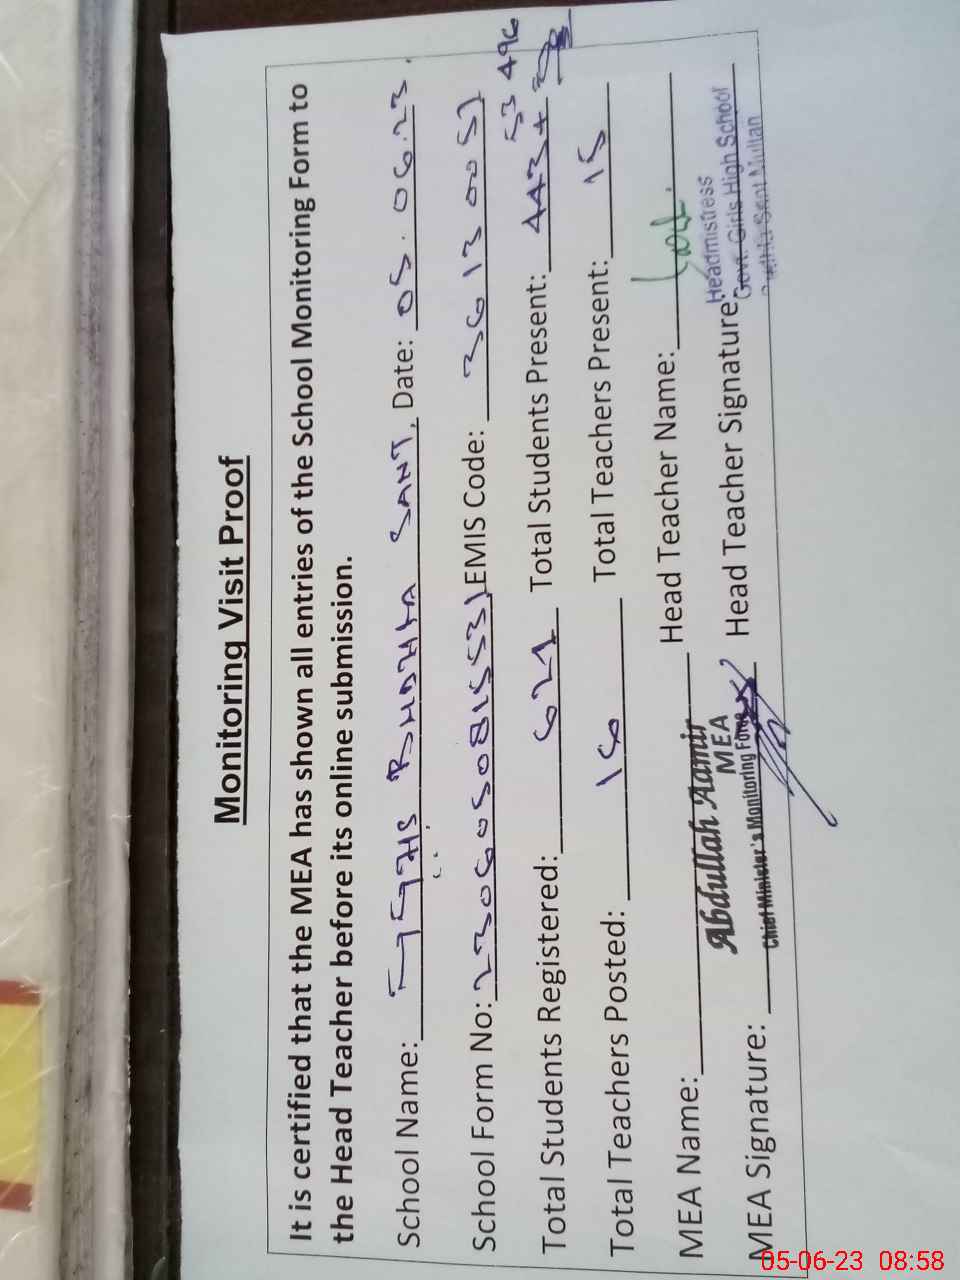 Monitoring Visit Proof
It is certified that the MEA has shown all entries of the School Monitoring Form to
the Head Teacher before its online submission.
School Name: GGHS BUDHLA SANT, Date: 05.06.23.
School Form No: EMIS Code: 36130051
Total Students Registered: 621 Total Students Present: 443+ 53 496
Total Teachers Posted: 16 Total Teachers Present: 15
MEA Name: Head Teacher Name:
Abdullah Aamir
MEA
Chief Minister's Monitoring Force
Headmistress
Govt. Girls High School
Sant Multan
MEA Signature: Head Teacher Signature:
05-06-23 08:58